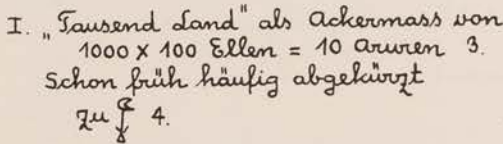 I. „Tausend Land" als Ackermass von
1000 x 100 Ellen = 10 Aruren 3.
Schon früh häufig abgekürzt
zu 4.